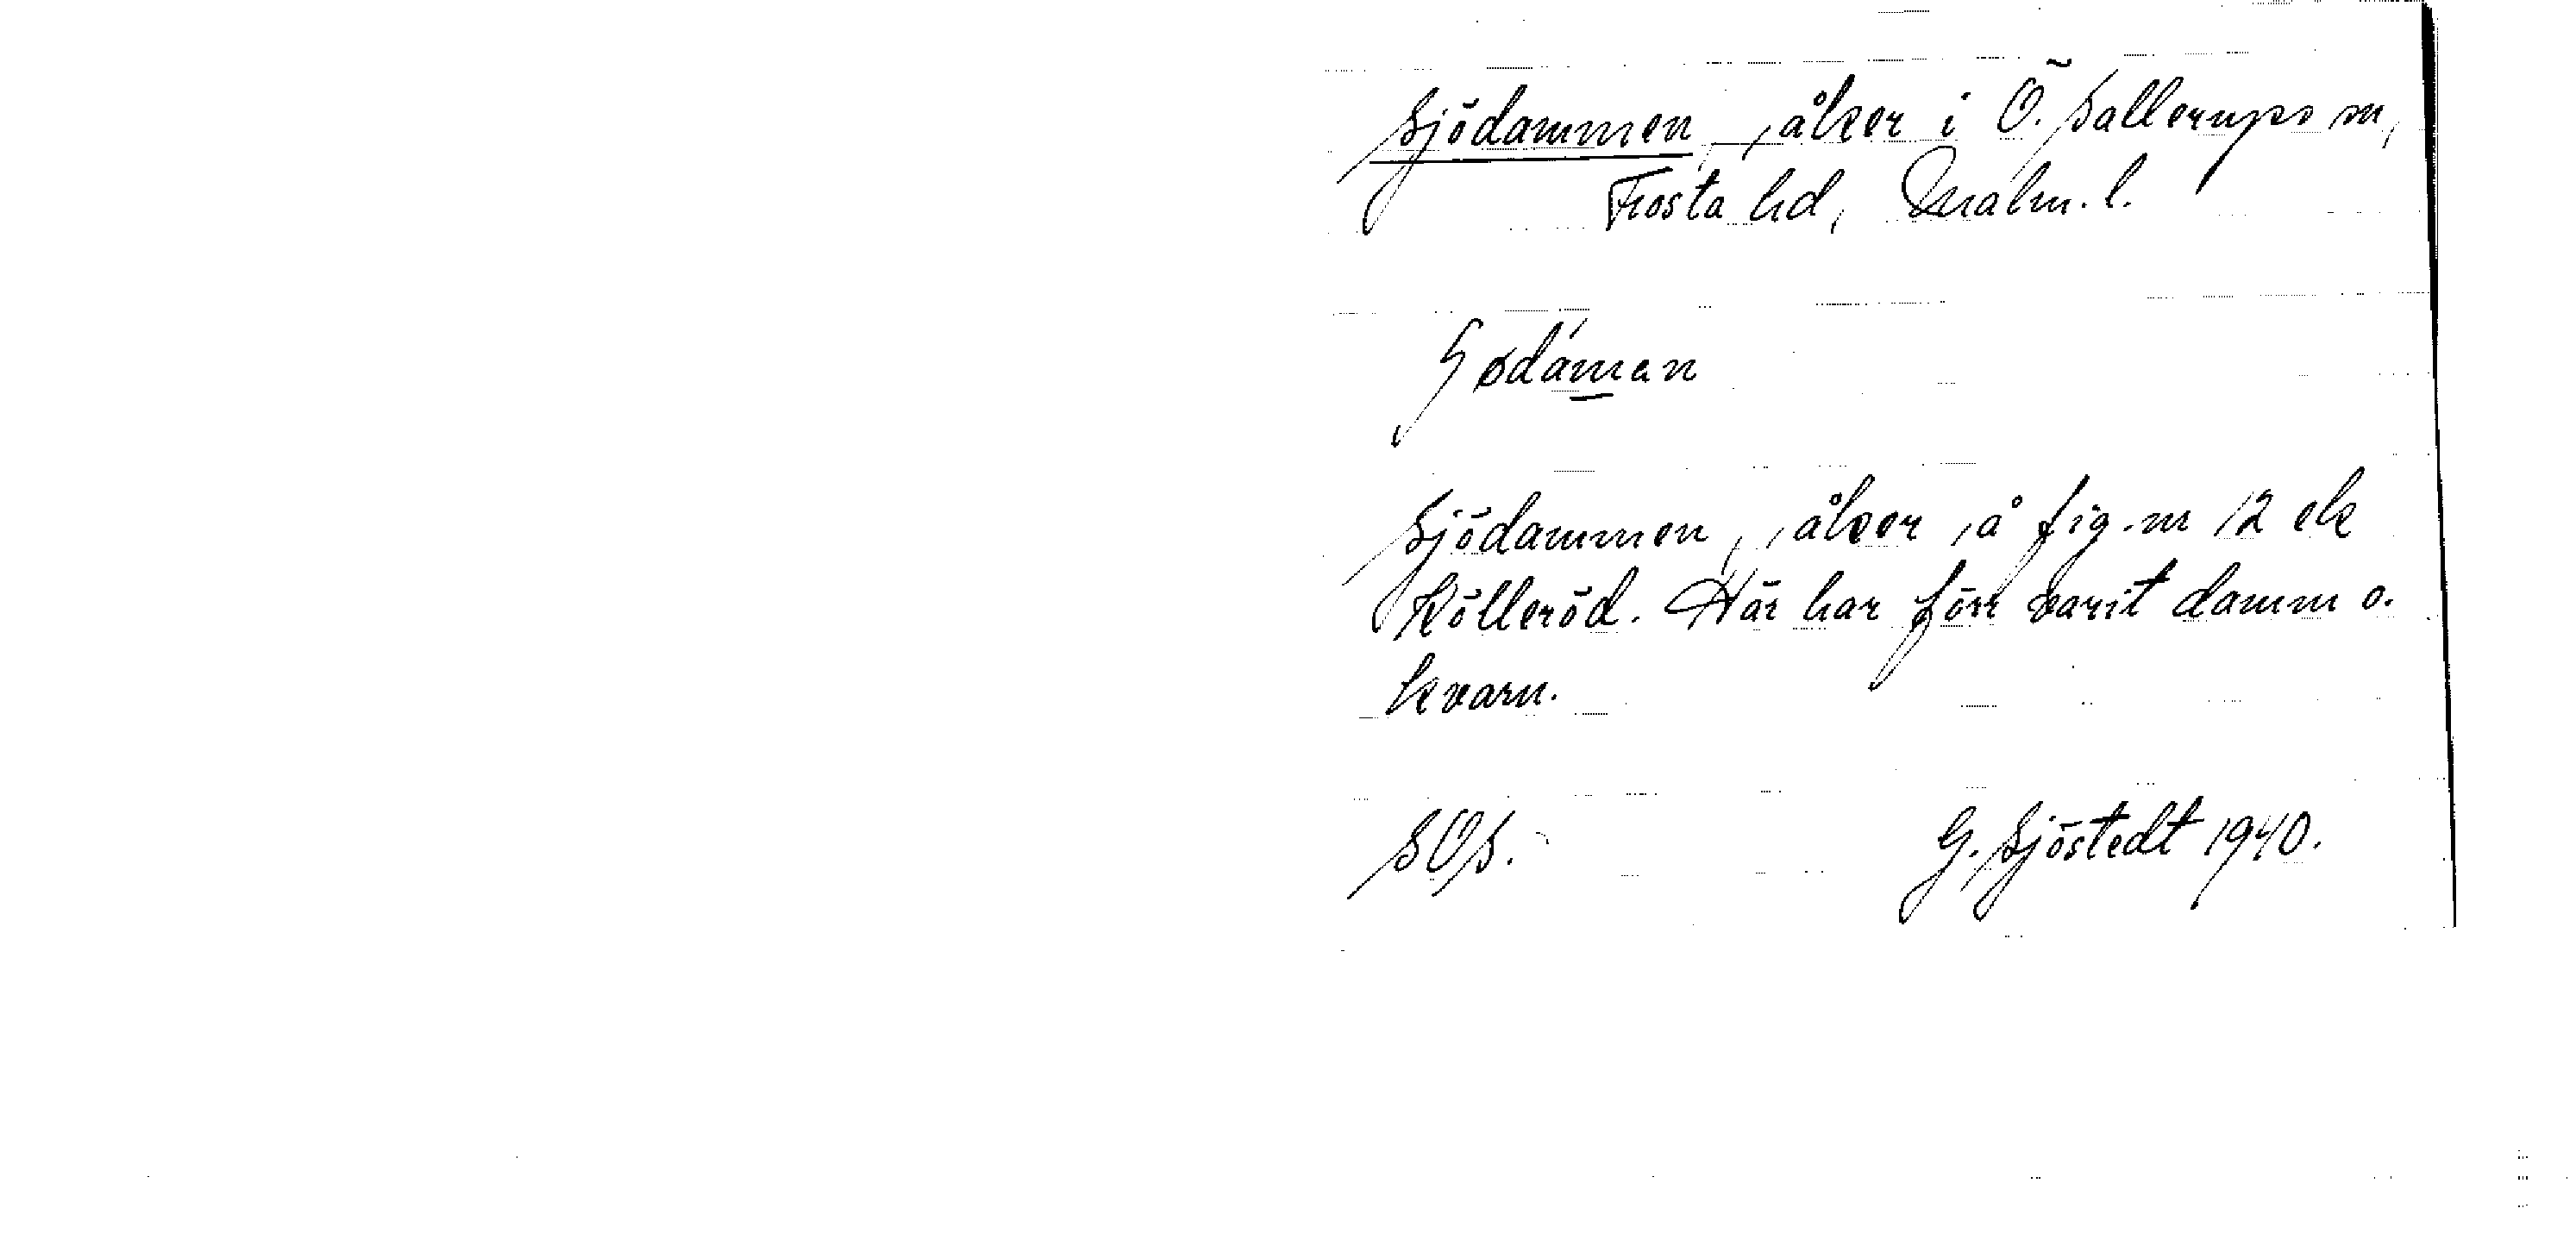 Sjödammen, åker i Ö. Sallerups sn,
Frosta hd, Malm. l.
Sjödammen, åker å fig. nr 12 ek
Kölleröd. Här har förr varit damm o.
kvarn.
SOS. G. Sjöstedt 1940.